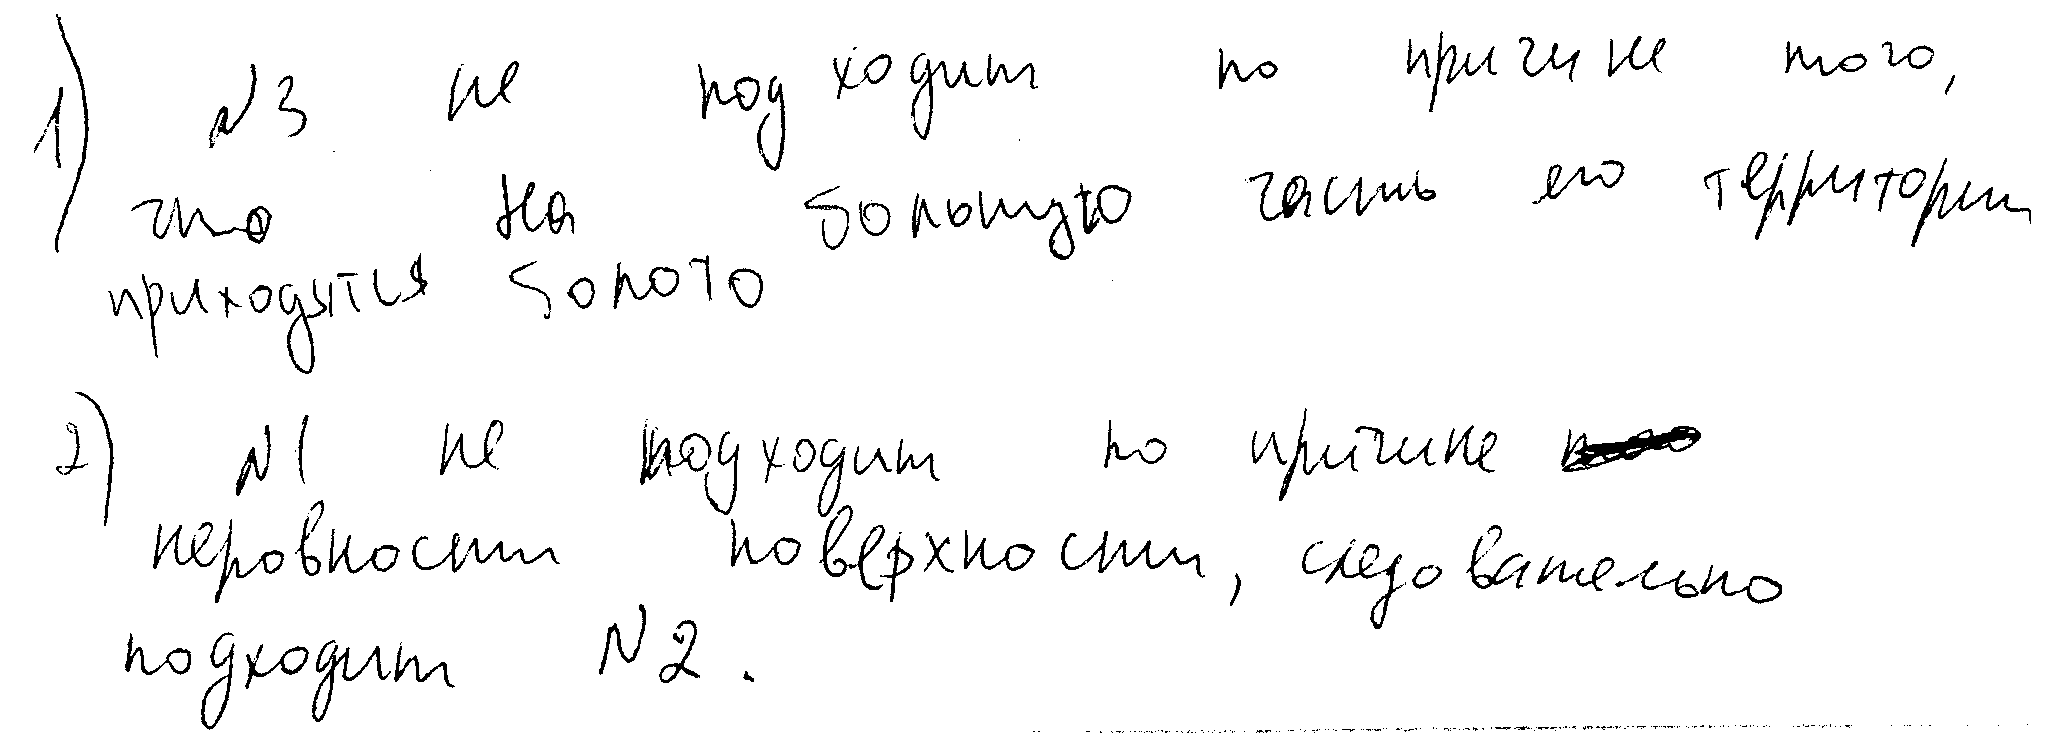 1) N3 не подходит по причине того,
что на большую часть его территории
приходится болото
2) N1 не подходит по причине
неровности поверхности, следовательно
подходит N2.